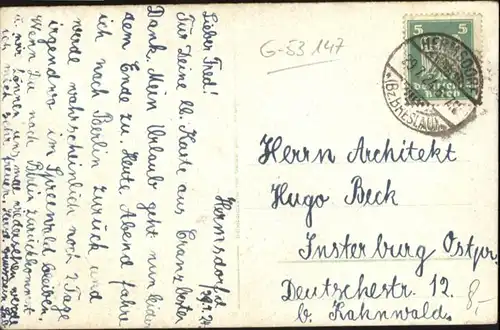 Hermsdorf
Lieber Fred!
Für Deine lb. Karte aus Cranz besten
Dank. Mein Urlaub geht nun leider
dem Ende zu. Heute Abend fahre
ich nach Berlin zurück und
werde wahrscheinlich noch 2 Tage
irgendwo im Spreewald bleiben.
Wenn Du nach Berlin zurückkommst
G-53 147
5
5
HERMSDORF
(Bz. BRESLAU)
Herrn Architekt
Hugo Beck
Insterburg Ostpr.
Deutschestr. 12
b. Kahnwald.
8-